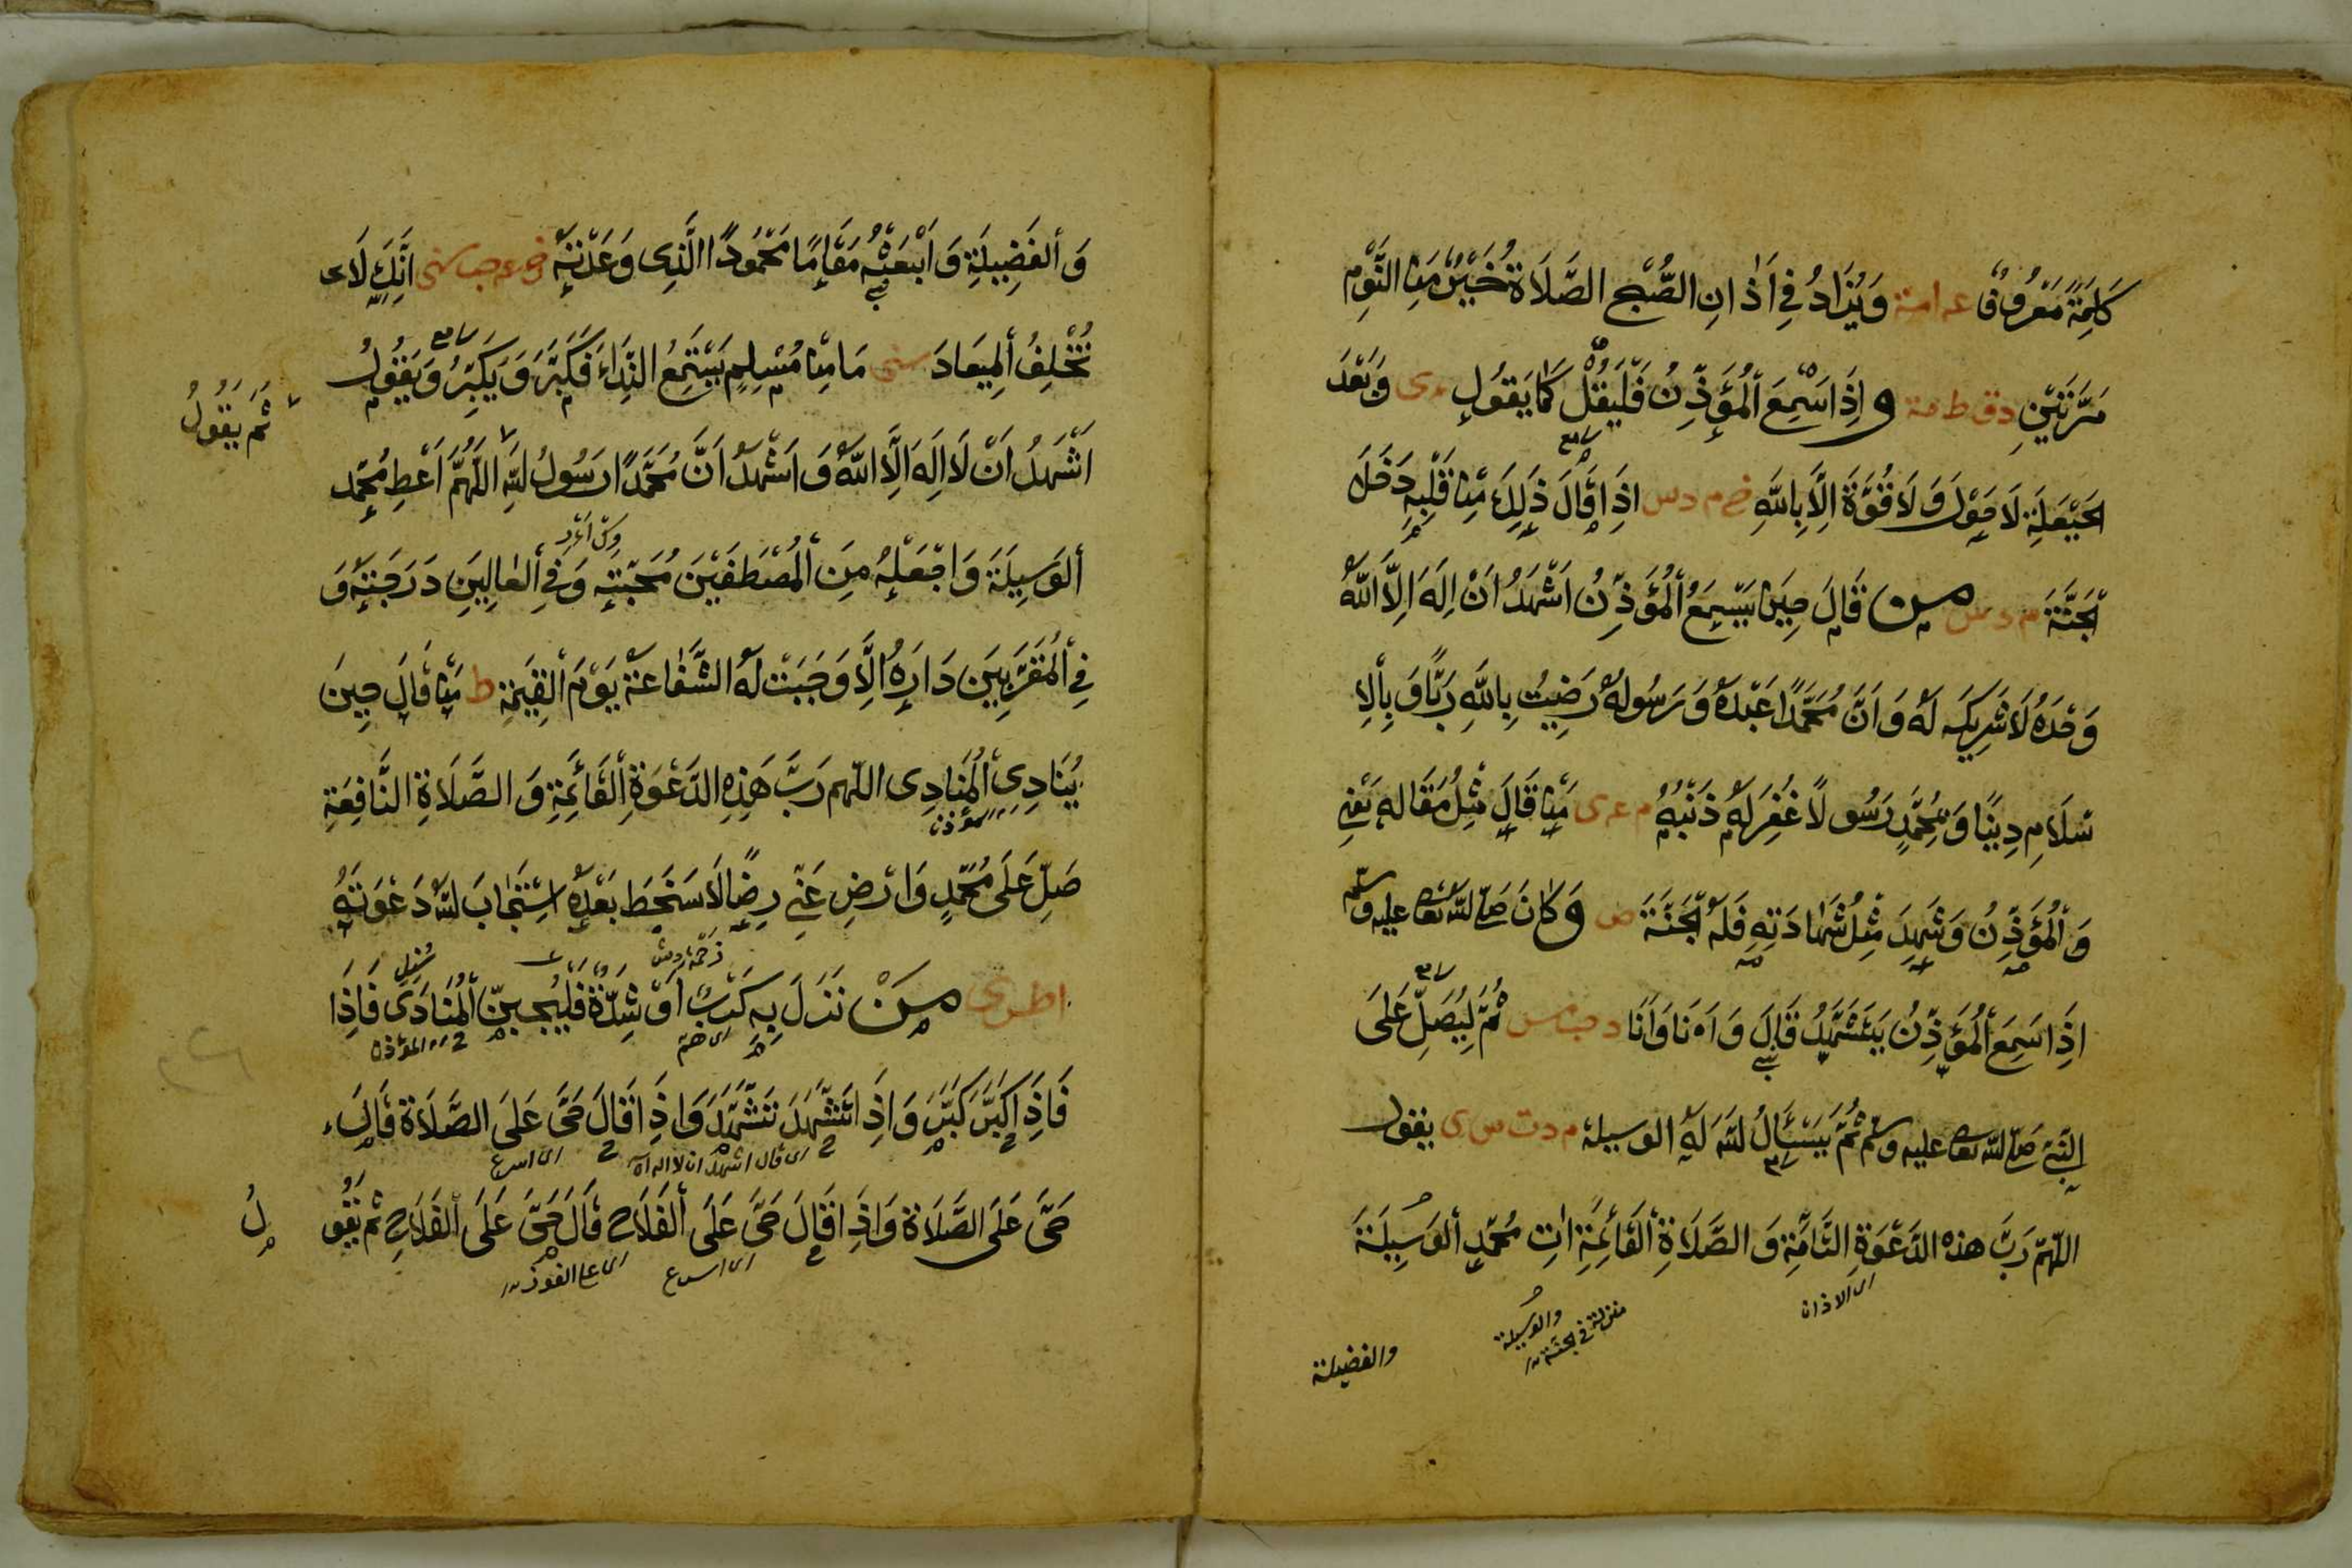 كَلِمَةً مَعْرُوفٌ عه امة وَيُزَادُ فِي اَذَانِ الصُّبْحِ الصَّلَاةُ خَيْرٌ مِنَ النَّوْمِ
مَرَّتَيْنِ دق ط مة و اِذَا سَمِعَ الْمُؤَذِّنُ فَلْيَقُلْ كَمَا يَقُولُ ع ى وَبَعْدَ
الحَيْعَلَةِ لَا حَوْلَ وَلَا قُوَّةَ اِلَّا بِاللهِ خ م د س اِذَا قَالَ ذَلِكَ مِنْ قَلْبِهِ دَخَلَ
الْجَنَّةَ م د س من قَالَ حِينَ يَسْمَعُ الْمُؤَذِّنُ اَشْهَدُ اَنْ اِلَهَ اِلَّا اللهُ
وَحْدَهُ لَا شَرِيكَ لَهُ وَ اَنَّ مُحَمَّدًا عَبْدُهُ وَ رَسُولُهُ رَضِيتُ بِاللهِ رَبًّا وَ بِالْاِ
سْلَامِ دِينًا وَ بِمُحَمَّدٍ رَسُولًا غُفِرَ لَهُ ذَنْبُهُ م عه ى مَنْ قَالَ مِثْلَ مَقَالِهِ يَعْنِي
وَ الْمُؤَذِّنُ وَ شَهِدَ مِثْلَ شَهَادَتِهِ فَلَهُ الْجَنَّةَ ص و كَانَ صلى الله تعالى عليه وسلم
اِذَا سَمِعَ الْمُؤَذِّنُ يَتَشَهَّدُ قَالَ وَ اَنَا وَ اَنَا د حب مس ثُمَّ لْيُصَلِّ عَلَى
النَّبِيِّ صلى الله تعالى عليه وسلم ثُمَّ يَسْئَالُ اللهَ لَهُ الوسيلة م د ت س ى يقول
اللهم رَبَّ هذه الدَّعْوَةِ التَّامَّةِ وَ الصَّلَاةِ الْقَائِمَةِ اٰتِ مُحَمَّدٍ الْوَسِيلَةَ
اى الاذان
والوسيلة
منزلة فى الجنة ١٢
والفضيلة
وَ الْفَضِيلَةِ وَ ابْعَثْهُ مَقَامًا مَحْمُودًا الَّذِى وَعَدْتَهُ خ عه حب سنى اِنَّكَ لَا
تُخْلِفُ الْمِيعَادَ سنى مَا مِنْ مُسْلِمٍ يَسْتَمِعُ النِّدَاءَ فَكَبَّرَ وَ يُكَبِّرُ وَ يَقُولُ
ثُمَّ يَقُولُ
اَشْهَدُ اَنْ لَا اِلَهَ اِلَّا اللهُ وَ اَشْهَدُ اَنَّ مُحَمَّدًا رَسُولُ اللهِ اللهُمَّ اَعْطِ مُحَمَّد
الوَسِيلَةَ وَ اجْعَلْهُ مِنَ الْمُصْطَفَيْنَ مُحَبَّتَهِ وَ فِي الْعَالِينَ دَرَجَتَهُ وَ
فِي الْمُقَرَّبِينَ دَارَهُ اِلَّا وَجَبَتْ لَهُ الشَّفَاعَةُ يَوْمَ الْقِيَمَةِ ط مَنْ قَالَ حِينَ
يُنَادِى الْمُنَادِى اللهم رَبَّ هَذِهِ الدَّعْوَةِ الْقَائِمَةِ وَ الصَّلَاةِ النَّافِعَةِ
المؤذن
صَلِّ عَلَى مُحَمَّدٍ وَ ارْضِ عَنِّي رِضًا لَا سَخَطَ بَعْدَهُ اسْتَجَابَ اللهُ دَعْوَتَهُ
ا ط س ى مَنْ نَزَلَ بِهِ كَرْبٌ اَوْ شِدَّةٌ فَلْيُجِبِ الْمُنَادِى فَاِذَا
اى هم
المؤذن
فَاِذَا كَبَّرَ كَبَّرَ وَ اِذَا تَشَهَّدَ تَشَهَّدَ وَ اِذَا قَالَ حَيَّ عَلَى الصَّلَاةِ قَالَ
اى قال اشهد ان لا اله
اى اسرع
حَيَّ عَلَى الصَّلَاةِ وَ اِذَا قَالَ حَيَّ عَلَى الْفَلَاحِ قَالَ حَيَّ عَلَى الْفَلَاحِ ثم يَقُو
لُ
اى اسرع
اى على الفوز ١٢